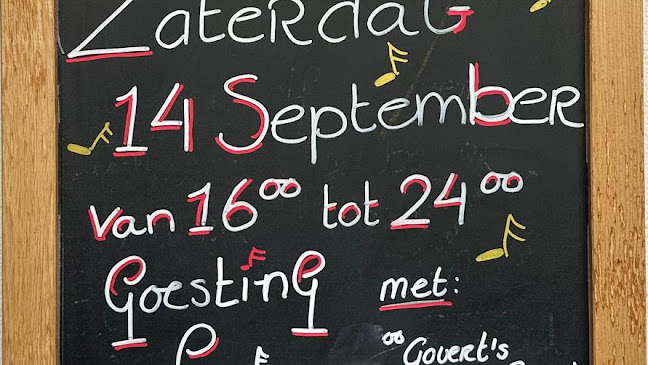 Zaterdag
14 September
van 16⁰⁰ tot 24⁰⁰
Goesting
met:
Govert's